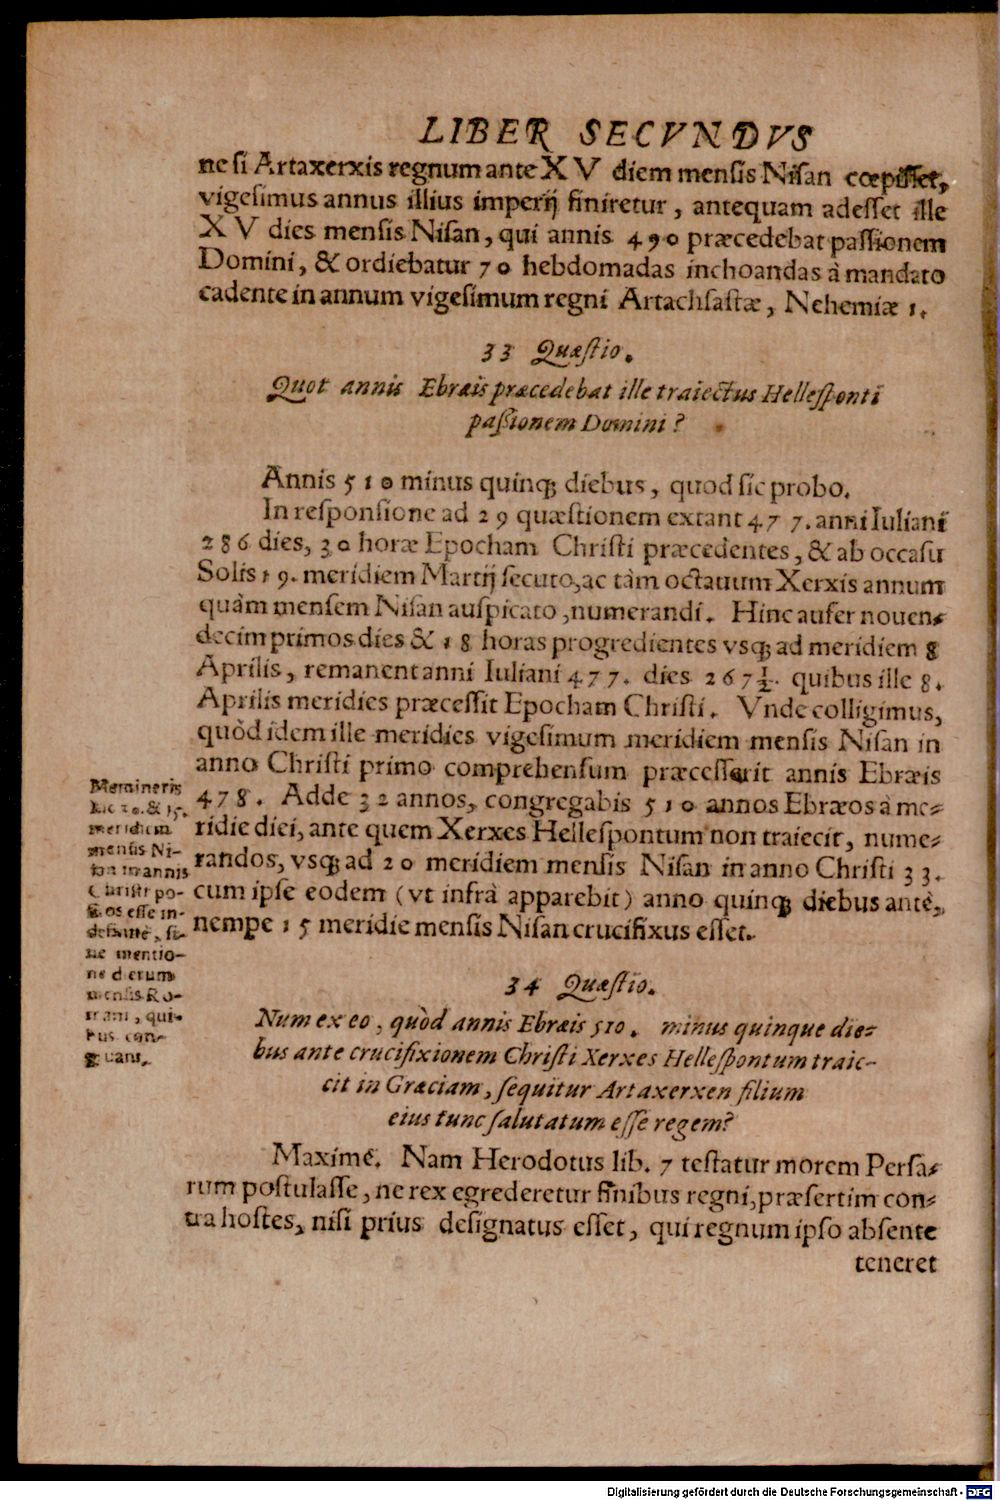 LIBER SECVNDVS
ne si Artaxerxis regnum ante XV diem mensis Nisan cœpisset,
vigesimus annus illius imperij finiretur, antequam adesset ille
XV dies mensis Nisan, qui annis 490 præcedebat passionem
Domini, & ordiebatur 70 hebdomadas inchoandas à mandato
cadente in annum vigesimum regni Artachsastæ, Nehemiæ 1.
33 Quæstio.
Quot annis Ebræis præcedebat ille traiectus Hellesponti
paßionem Domini?
Annis 510 minus quinq; diebus, quod sic probo.
In responsione ad 29 quæstionem extant 477. anni Iuliani
286 dies, 30 horæ Epocham Christi præcedentes, & ab occasu
Solis 19. meridiem Martij secuto, ac tàm octauum Xerxis annum
quàm mensem Nisan auspicato, numerandi. Hinc aufer nouen-
decim primos dies & 18 horas progredientes vsq; ad meridiem 8
Aprilis, remanent anni Iuliani 477. dies 267 1/2. quibus ille 8.
Aprilis meridies præcessit Epocham Christi. Vnde colligimus,
quòd idem ille meridies vigesimum meridiem mensis Nisan in
anno Christi primo comprehensum præcesserit annis Ebræis
478. Adde 32 annos, congregabis 510 annos Ebræos à me-
ridie diei, ante quem Xerxes Hellespontum non traiecit, nume-
randos, vsq; ad 20 meridiem mensis Nisan in anno Christi 33.
cum ipse eodem (vt infrà apparebit) anno quinq; diebus antè,
nempe 15 meridie mensis Nisan crucifixus esset.
Memineris
hîc 20. & 15.
meridiem
mensis Ni-
san in annis
Christi po-
sitos esse in-
definitè, si-
ne mentio-
ne dierum
mensis Ro-
mani, qui-
bus con-
gruant.
34 Quæstio.
Num ex eo, quòd annis Ebræis 510. minus quinque die-
bus ante crucifixionem Christi Xerxes Hellespontum traie-
cit in Græciam, sequitur Artaxerxen filium
eius tunc salutatum esse regem?
Maximè. Nam Herodotus lib. 7 testatur morem Persa-
rum postulasse, ne rex egrederetur finibus regni, præsertim con-
tra hostes, nisi prius designatus esset, qui regnum ipso absente
teneret
Digitalisierung gefördert durch die Deutsche Forschungsgemeinschaft - DFG